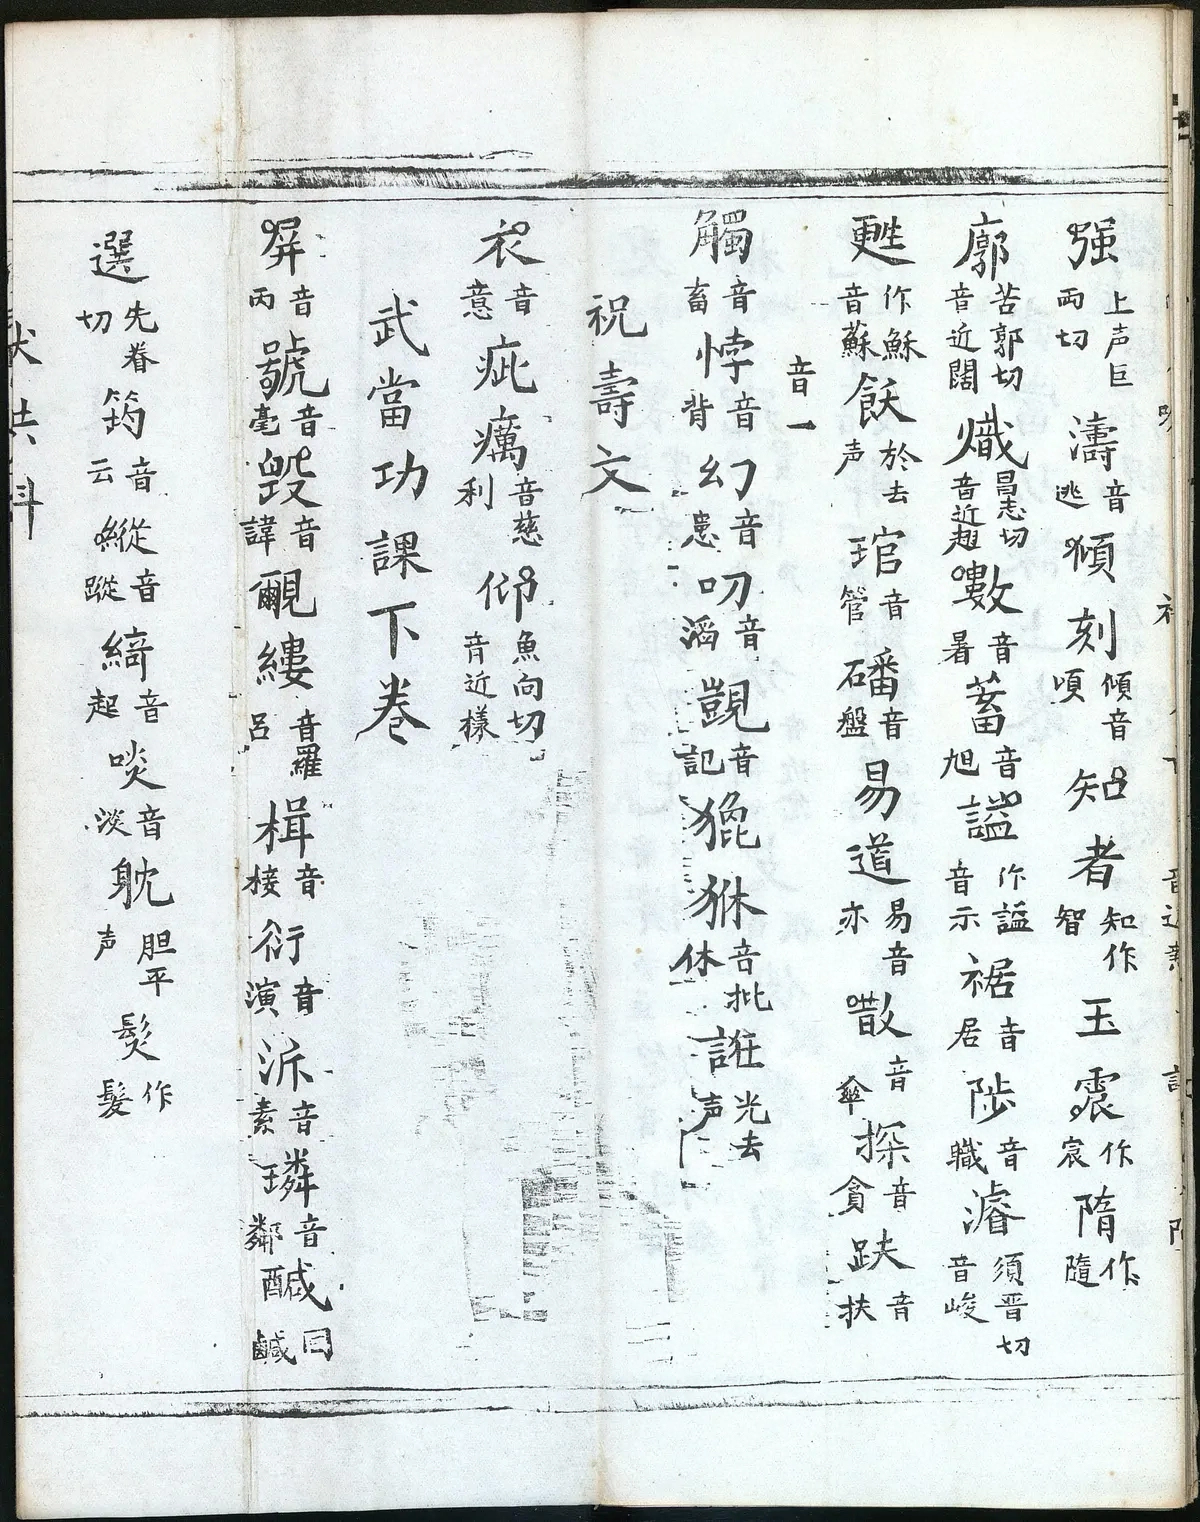 强上声巨兩切濤音逃傾刻傾音頃知者知作智玉震作宸隋作隨
廓苦郭切音近闊熾昌志切音近趐數音暑蓄音旭謚作謚音示裾音居陟音職濬須晋切音峻
甦作穌音蘇飫於去声琯音管磻音盤易道易音亦散音傘探音貪趺音扶
音一
觸音畜悖音背幻音患叨音滔覬音記貔貅音批休誑光去声
祝壽文
衣音意疵癘音慈利仰魚向切音近樣
武當功課下卷
屏音丙號音毫毀音諱覼縷音羅呂楫音接衍音演泝音素璘音鄰醎同鹹
選先眷切筠音云縱音蹤綺音起啖音淡躭胆平声髮作髮